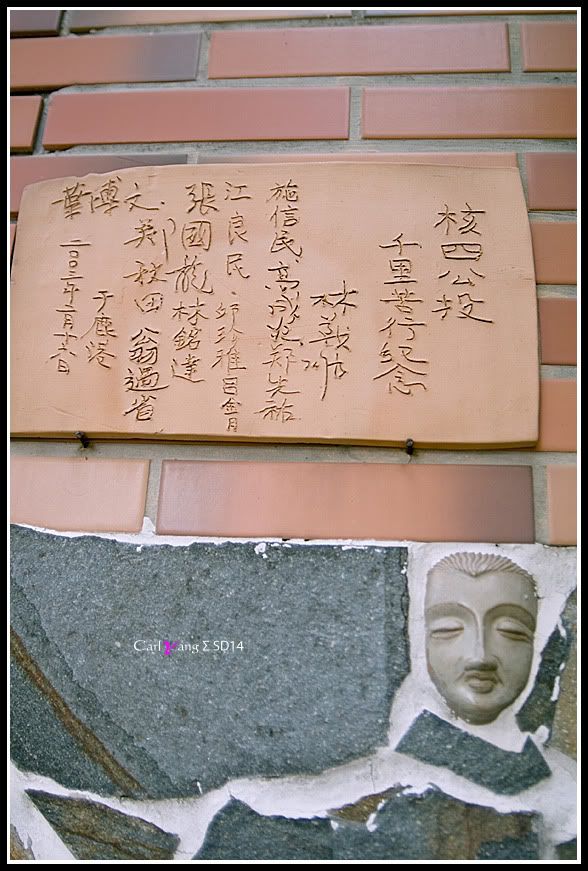 核四公投
千里苦行紀念
林義雄
施信民 高成炎 鄭先祐
江良民
張國龍 林銘達
葉博文
鄭秋田 翁過省
于鹿港
二〇〇三年二月十六日
Carl Yang Σ SD14